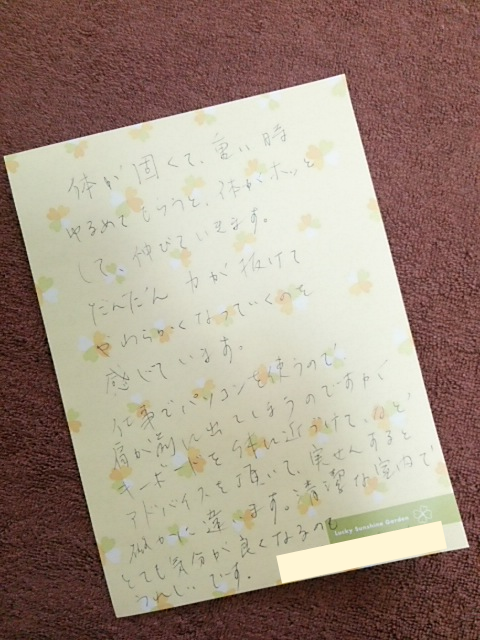 体が固くて、重い時
ゆるめてもらうと、体がホッと
して、伸びていきます。
だんだん 力が抜けて
やわらかくなっていくのを
感じています。
仕事でパソコンを使うので
肩が前に出てしまうのですが
キーボードを体に近づけていると
アドバイスを頂いて、実せんすると
確かに違います。清潔な室内で
とても気分が良くなるのも
うれしいです。
Lucky Sunshine Garden